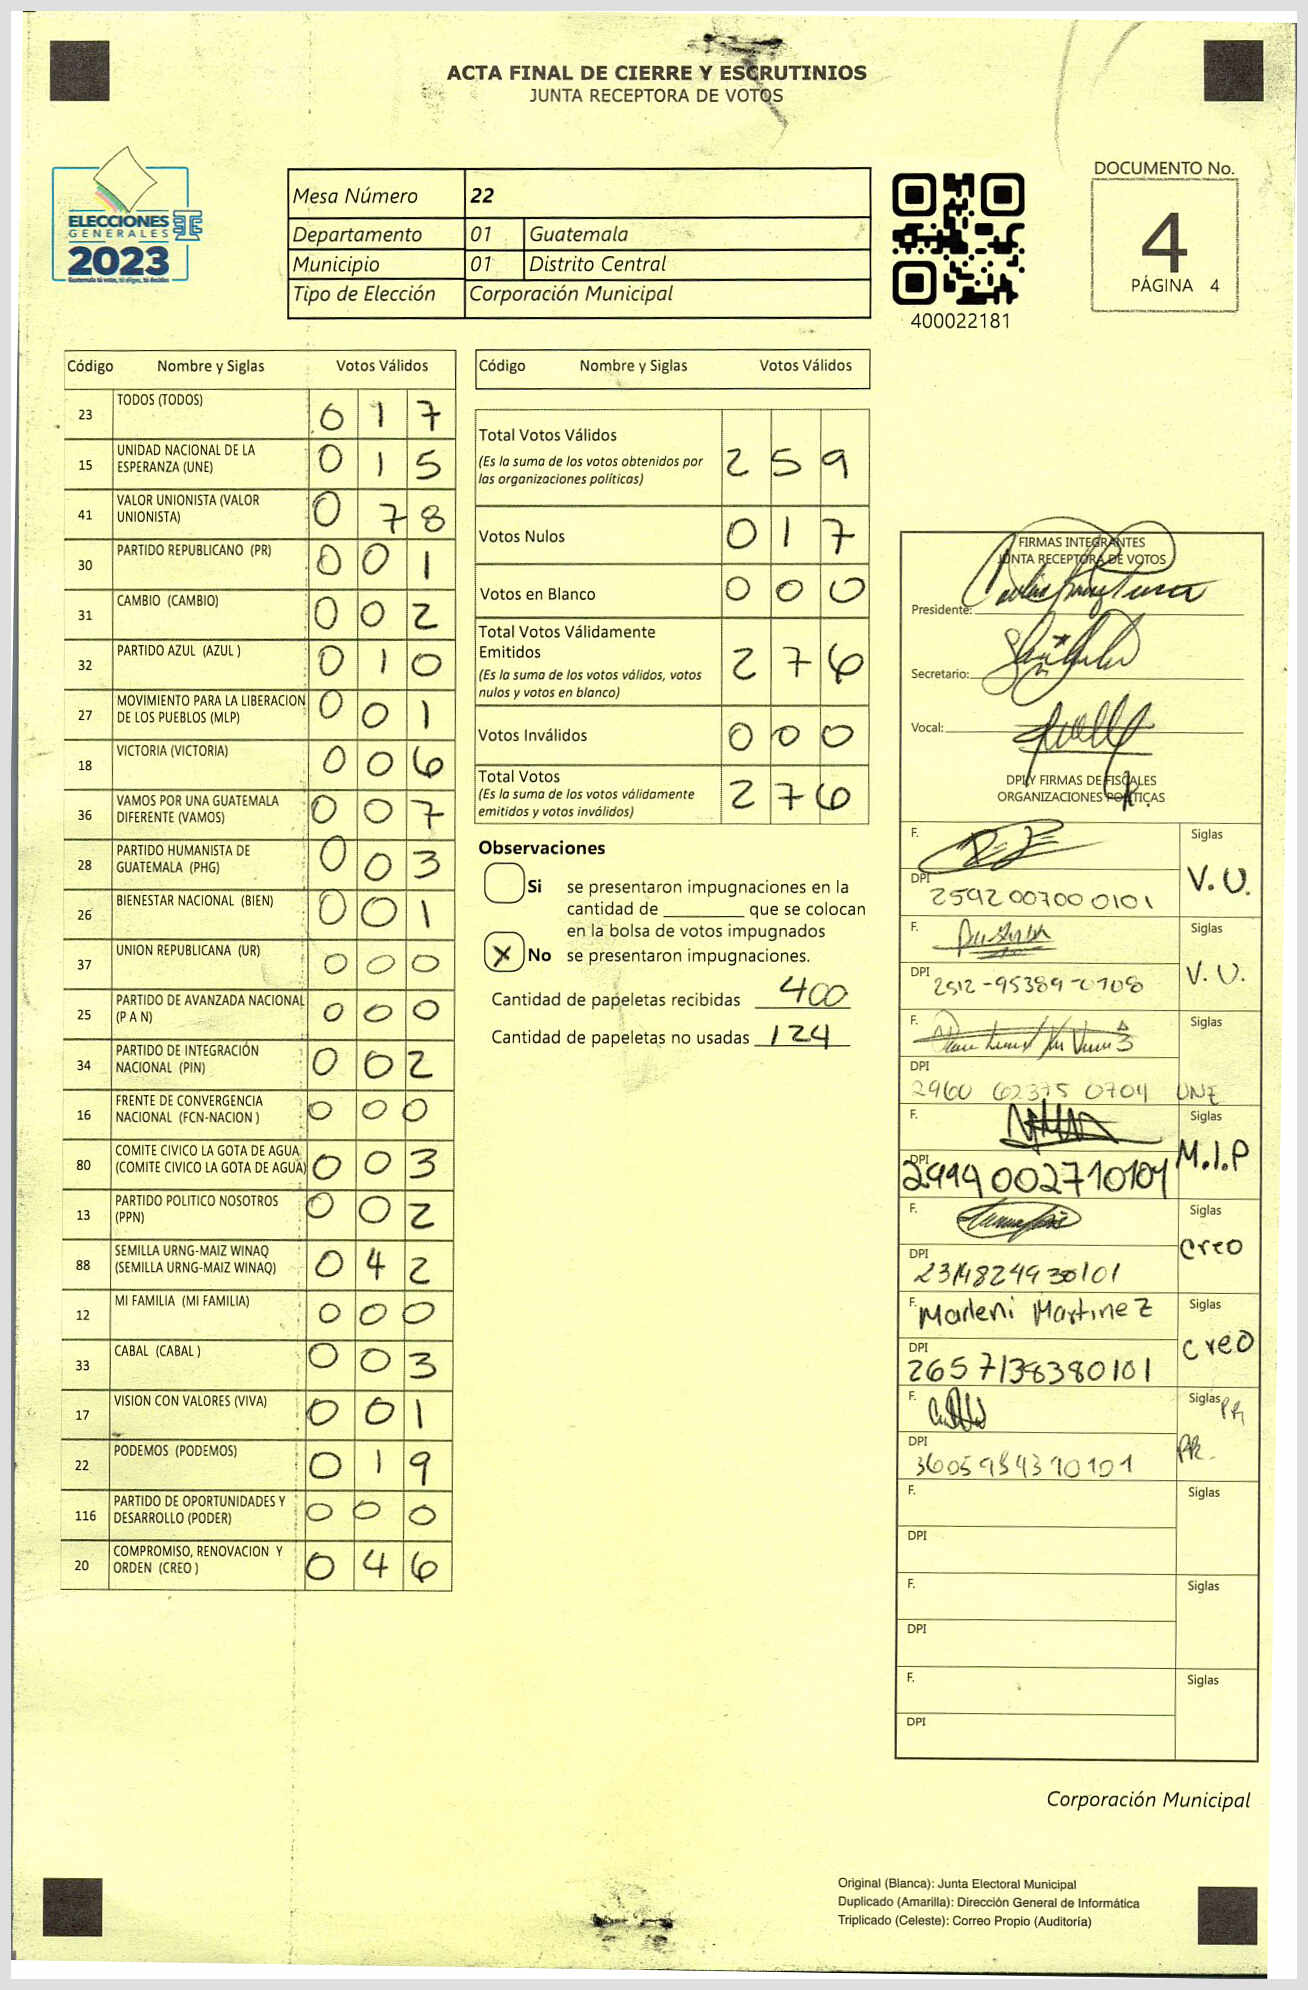 ACTA FINAL DE CIERRE Y ESCRUTINIOS
JUNTA RECEPTORA DE VOTOS
ELECCIONES
GENERALES
2023
Mesa Número 22
Departamento 01 Guatemala
Municipio 01 Distrito Central
Tipo de Elección Corporación Municipal
400022181
DOCUMENTO No.
4
PÁGINA 4
Código Nombre y Siglas Votos Válidos
23 TODOS (TODOS) 0 1 7
15 UNIDAD NACIONAL DE LA ESPERANZA (UNE) 0 1 5
41 VALOR UNIONISTA (VALOR UNIONISTA) 0 7 8
30 PARTIDO REPUBLICANO (PR) 0 0 1
31 CAMBIO (CAMBIO) 0 0 2
32 PARTIDO AZUL (AZUL ) 0 1 0
27 MOVIMIENTO PARA LA LIBERACION DE LOS PUEBLOS (MLP) 0 0 1
18 VICTORIA (VICTORIA) 0 0 6
36 VAMOS POR UNA GUATEMALA DIFERENTE (VAMOS) 0 0 7
28 PARTIDO HUMANISTA DE GUATEMALA (PHG) 0 0 3
26 BIENESTAR NACIONAL (BIEN) 0 0 1
37 UNION REPUBLICANA (UR) 0 0 0
25 PARTIDO DE AVANZADA NACIONAL (P A N) 0 0 0
34 PARTIDO DE INTEGRACIÓN NACIONAL (PIN) 0 0 2
16 FRENTE DE CONVERGENCIA NACIONAL (FCN-NACION ) 0 0 0
80 COMITE CIVICO LA GOTA DE AGUA (COMITE CIVICO LA GOTA DE AGUA) 0 0 3
13 PARTIDO POLITICO NOSOTROS (PPN) 0 0 2
88 SEMILLA URNG-MAIZ WINAQ (SEMILLA URNG-MAIZ WINAQ) 0 4 2
12 MI FAMILIA (MI FAMILIA) 0 0 0
33 CABAL (CABAL ) 0 0 3
17 VISION CON VALORES (VIVA) 0 0 1
22 PODEMOS (PODEMOS) 0 1 9
116 PARTIDO DE OPORTUNIDADES Y DESARROLLO (PODER) 0 0 0
20 COMPROMISO, RENOVACION Y ORDEN (CREO ) 0 4 6
Código Nombre y Siglas Votos Válidos
Total Votos Válidos 2 5 9
(Es la suma de los votos obtenidos por
las organizaciones políticas)
Votos Nulos 0 1 7
Votos en Blanco 0 0 0
Total Votos Válidamente
Emitidos 2 7 6
(Es la suma de los votos válidos, votos
nulos y votos en blanco)
Votos Inválidos 0 0 0
Total Votos 2 7 6
(Es la suma de los votos válidamente
emitidos y votos inválidos)
Observaciones
Si se presentaron impugnaciones en la
cantidad de ________ que se colocan
en la bolsa de votos impugnados
X No se presentaron impugnaciones.
Cantidad de papeletas recibidas 400
Cantidad de papeletas no usadas 124
FIRMAS INTEGRANTES
JUNTA RECEPTORA DE VOTOS
Presidente:
Secretario:
Vocal:
DPI Y FIRMAS DE FISCALES
ORGANIZACIONES POLÍTICAS
F. Siglas
V.U.
DPI
2592 00700 0101
F. Siglas
V.U.
DPI
2512-95389-0108
F. Siglas
DPI
2960 62375 0704 UNE
F. Siglas
M.I.P
DPI
2999 002710101
F. Siglas
creo
DPI
F. Marleni Martinez Siglas
creo
DPI
2657138380101
F. Siglas PR
PR.
DPI
F. Siglas
DPI
F. Siglas
DPI
F. Siglas
DPI
Corporación Municipal
Original (Blanca): Junta Electoral Municipal
Duplicado (Amarilla): Dirección General de Informática
Triplicado (Celeste): Correo Propio (Auditoría)